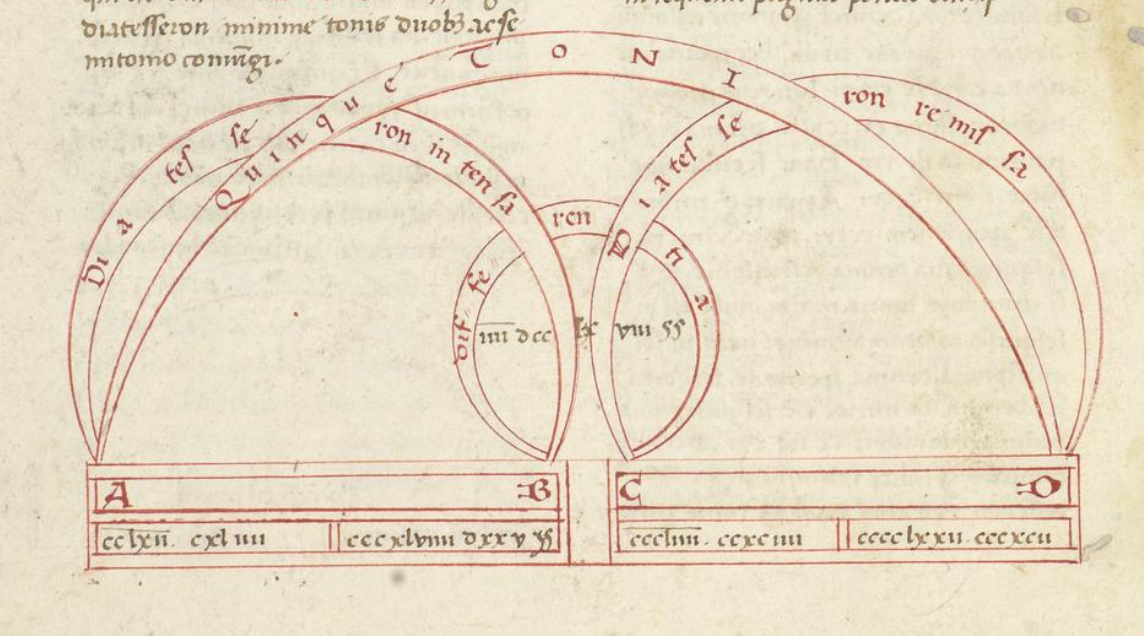 diatesseron minime tonis duob; ac se
mitonio coniungi.
QUINQUE TONI
Diatesse ron intensa
Diatesse ron remissa
differentia
iiii dcc
viii ss
A B C D
cclxii. cxliiii
cccxlviiii dxxv ss
cccliiii. ccxciiii
cccclxxii. cccxcii